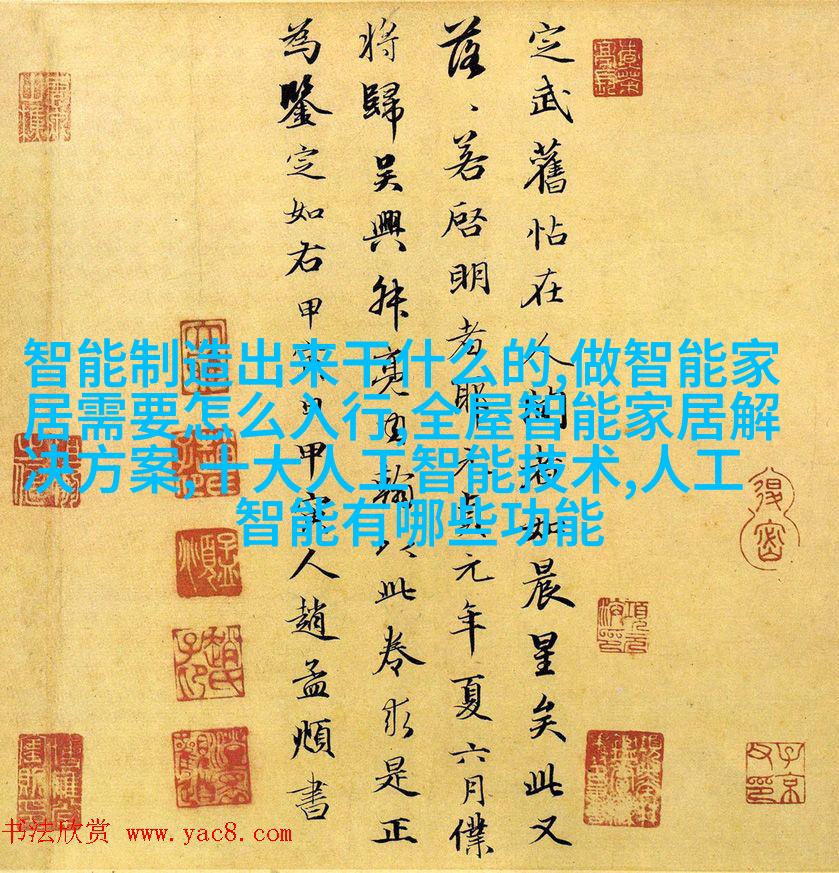 定武舊帖在人間者如晨星矣此又
落、若啓明者耶元貞元年夏六月僕
將歸吳興叔亮內翰以此卷求是正
為鑒定如右甲寅日甲寅人趙孟頫書
智能制造出来干什么的,做智能家
居需要怎么入行,全屋智能家居解
决方案,十大人工智能技术,人工
智能有哪些功能
书法欣赏 www.yac8.com